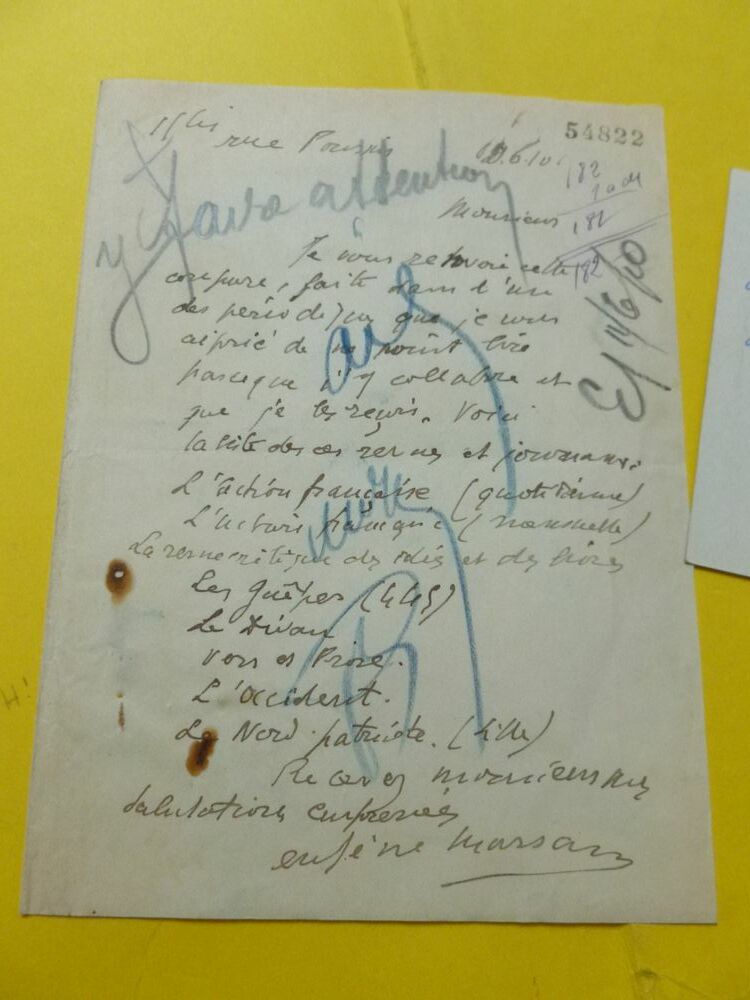 54822
11 bis rue Poussin 10.6.10
182
Monsieur
faire attention
182
Je vous renvoie cette
182
coupure, faite dans l'un
des périodiques que je vous
ai prié de ne point lire
parce que j'y collabore et
que je les reçois. Voici
la liste de ces revues et journaux.
L'action française (quotidienne)
(mensuelle)
La revue critique des idées et des livres
Les Guêpes
Le Divan
Vers et Prose.
L'occident.
Le Nord patriote. (Lille)
Recevez monsieur mes
salutations empressées
eugène Marsan